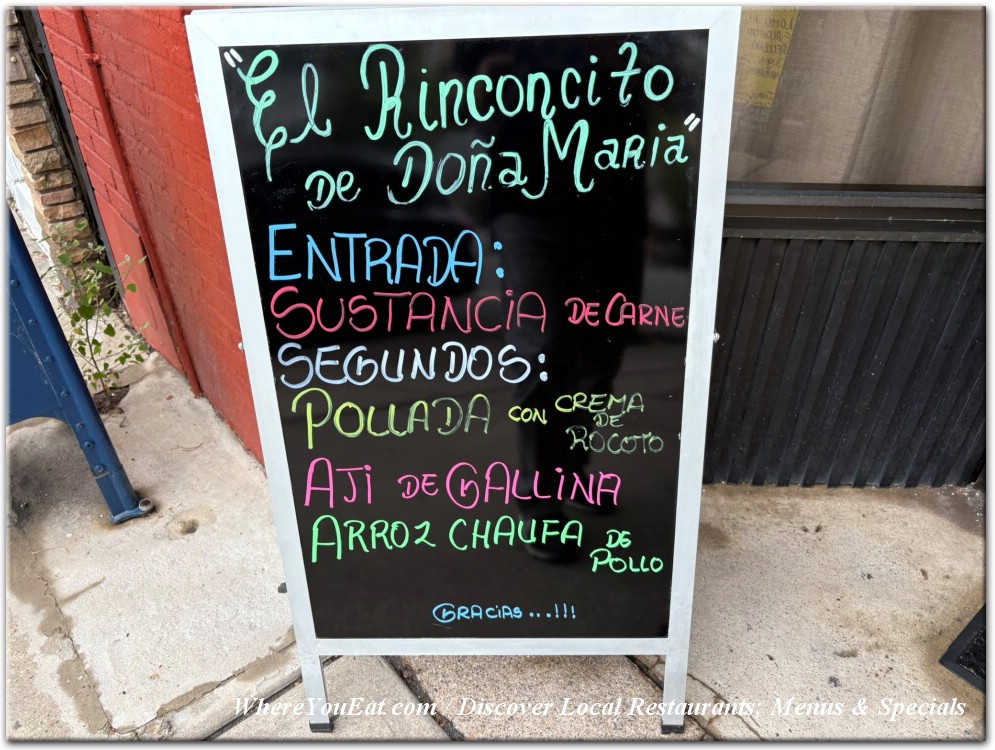 "El Rinconcito
de Doña Maria"
ENTRADA:
SUSTANCIA DE CARNE
SEGUNDOS:
POLLADA CON CREMA
DE
ROCOTO
AJI DE GALLINA
ARROZ CHAUFA DE
POLLO
GRACIAS...!!!
WhereYouEat.com Discover Local Restaurants, Menus & Specials